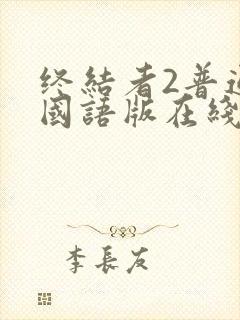 终結者2普通
國語版在綫
李長友